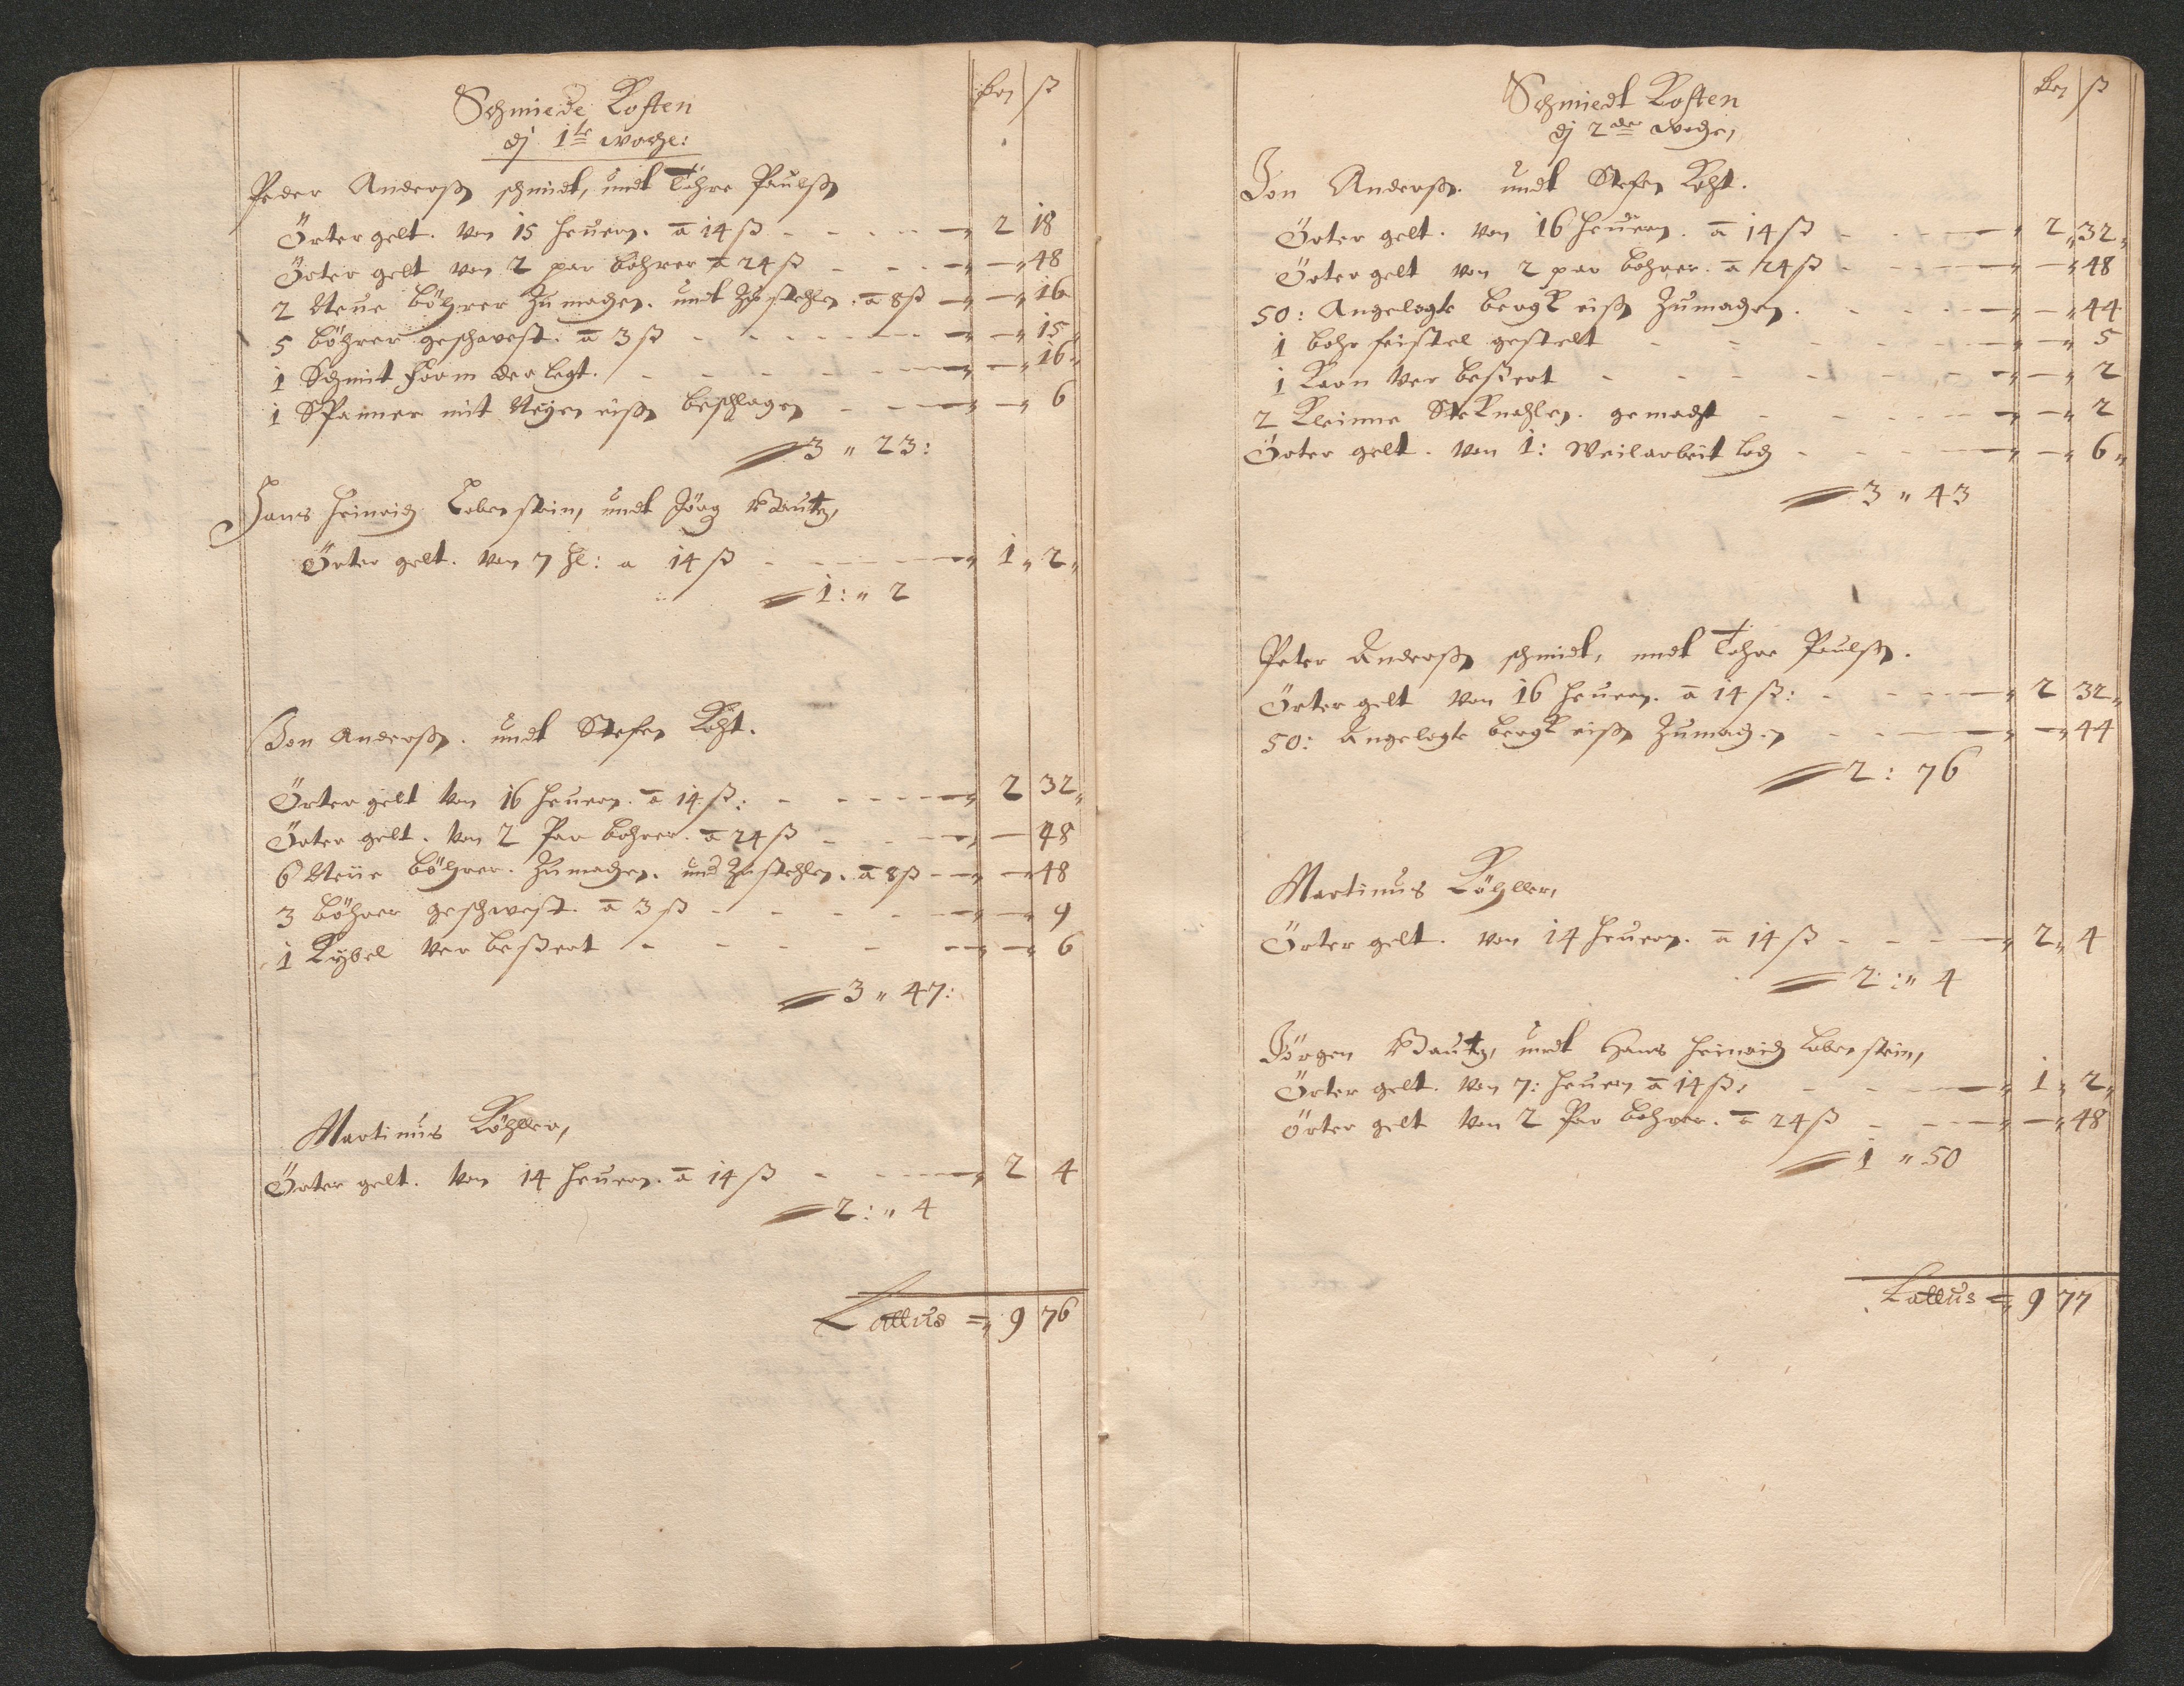 Schmiede Kosten
dj 1te woche:
Rdr ß
Peder Anderßen schmidt, undt Tohre Paulßen
Örter gelt. von 15 heuern. a 14 ß - - - - 2 18
Örter gelt von 2 par bohrer a 24 ß - - - - 48
2 Neue böhrer Zumachen. undt Zustehlen. a 8 ß - - 16
5 böhrer geschwest. a 3 ß - - - - - 15
1 Schmit Form der legt. - - - - - 16
1 Spanner mit Neyen eißen beschlagen - - - 6
3 " 23:
Hans Heinrich Lobenstein, undt Jörg Bautz,
Örter gelt. von 7 hl: a 14 ß - - - - 1 " 2 "
1: " 2
Jon Anderßen. undt Stefen Koht.
Örter gelt von 16 heuern. a 14 ß: - - - - 2 32 "
Örter gelt. von 2 Par bohrer. a 24 ß - - - - 48
6 Neüe böhrer. Zumachen. und Zustehlen. a 8 ß - - - 48
3 böhrer geschwest. a 3 ß - - - - - 9
1 Kybel ver beßert - - - - - 6
3 " 47:
Martinus Köhller,
Örter gelt. von 14 heuern. a 14 ß - - - - 2 4
2: " 4
Lattus = 9 76
Schmiedt Kosten
dj 2de woche,
Rdr ß
Jon Anderßen. undt Stefen Koht.
Örter gelt. von 16 heuern. a 14 ß - - - - 2 " 32 "
Örter gelt von 2 par bohrer. a 24 ß - - - - 48
50: Angelegte bergk eißen Zumachen. - - - - 44
1 bohr feistel gestelt - - - - - 5
1 Karn ver beßert - - - - - 2
2 Kleinne Steknahlen. gemacht - - - - 2
Örter gelt. von 1: Weilarbeit loch - - - - 6 "
3 " 43
Peter Anderßen schmidt, undt Tohre Paulßen.
Örter gelt von 16 heuern. a 14 ß: - - - - 2 32 "
50: Angelegte bergk eißen Zumachen - - - - 44
2: 76
Martinus Köhller,
Örter gelt. von 14 heuern. a 14 ß - - - - 2 " 4
2: " 4
Jörgen Bautz, undt Hans Heinrich Lobenstein,
Örter gelt. von 7: heuern a 14 ß: - - - 1 " 2 "
Örter gelt von 2 Par bohrer. a 24 ß - - - - 48
1 " 50
Lattus = 9 77